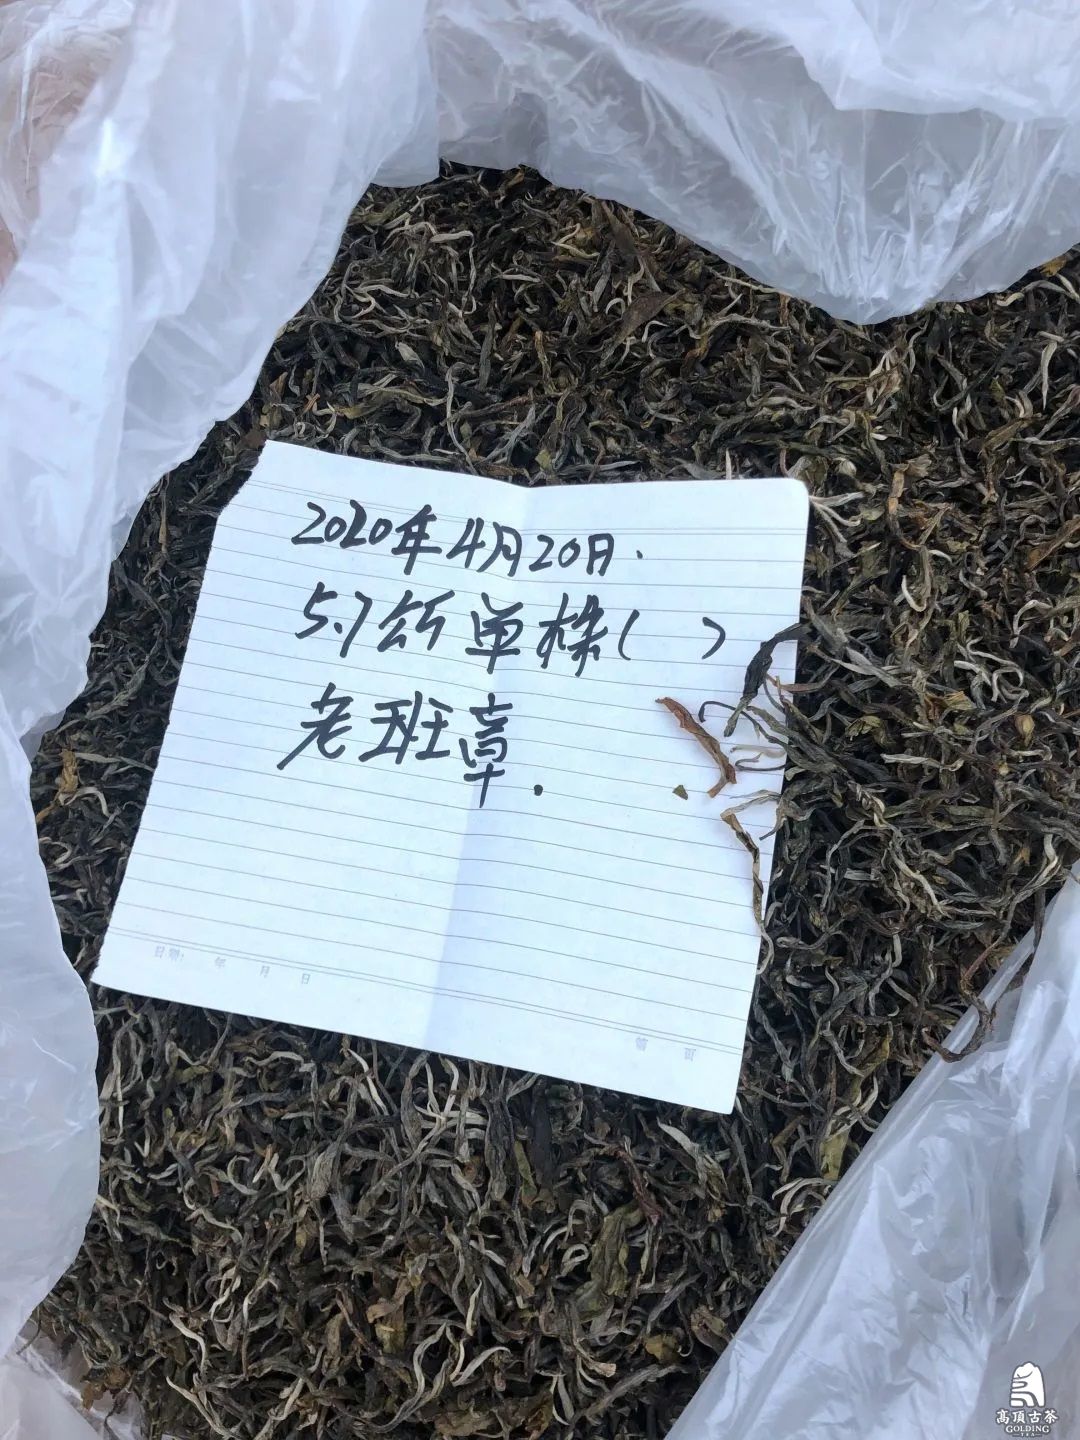 2020年4月20日.
5.7公斤单株( )
老班章.
日期: 年 月 日
第 页
高頂古茶
GOLDING
TEA